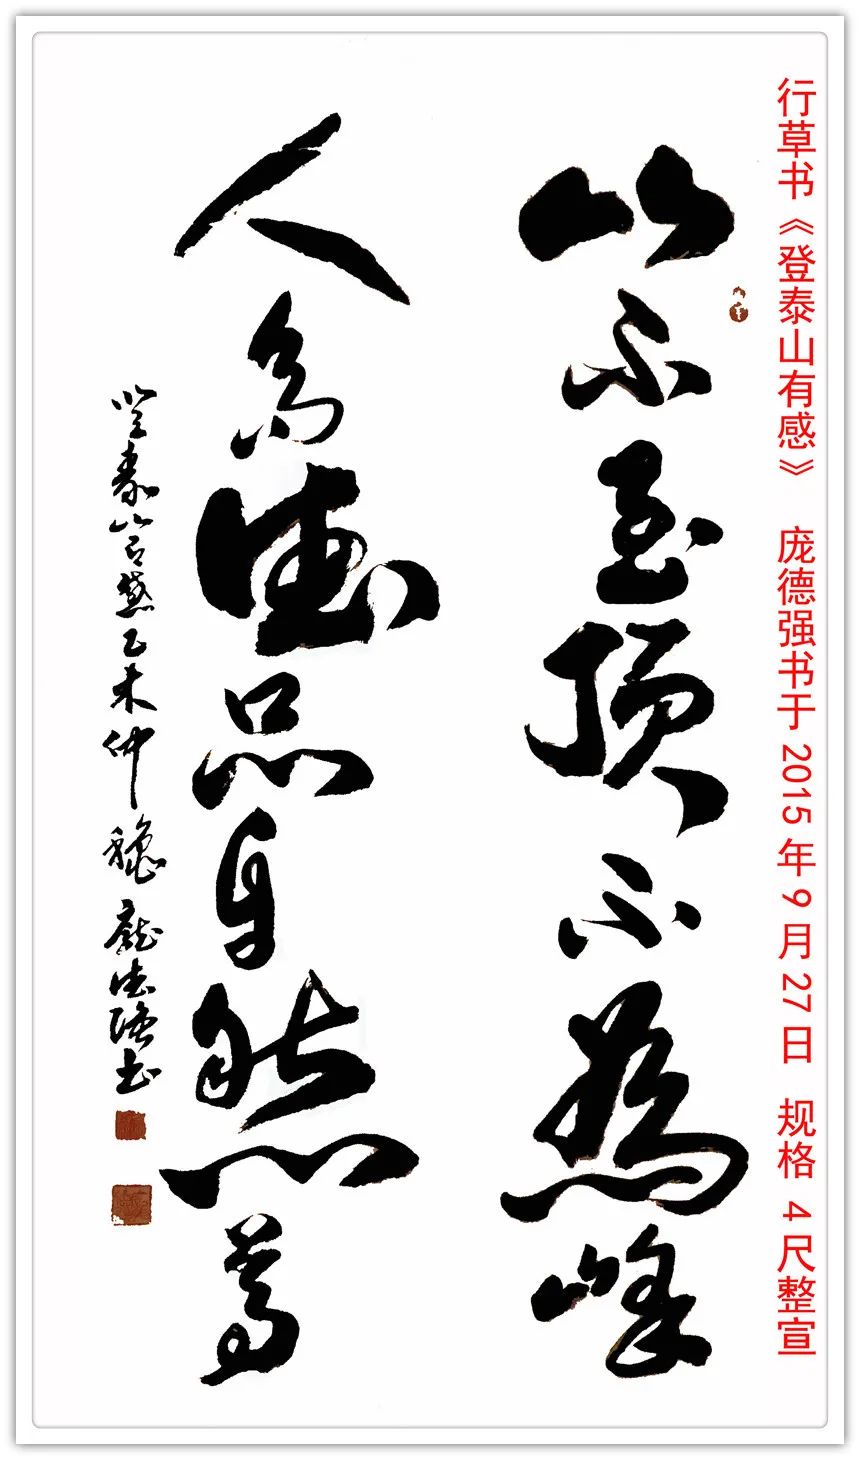 行草书《登泰山有感》 庞德强书于2015年9月27日 规格 4尺整宣
山不至頂不為峰
人德品自然尊
登泰山有感乙未仲穐龐德强书